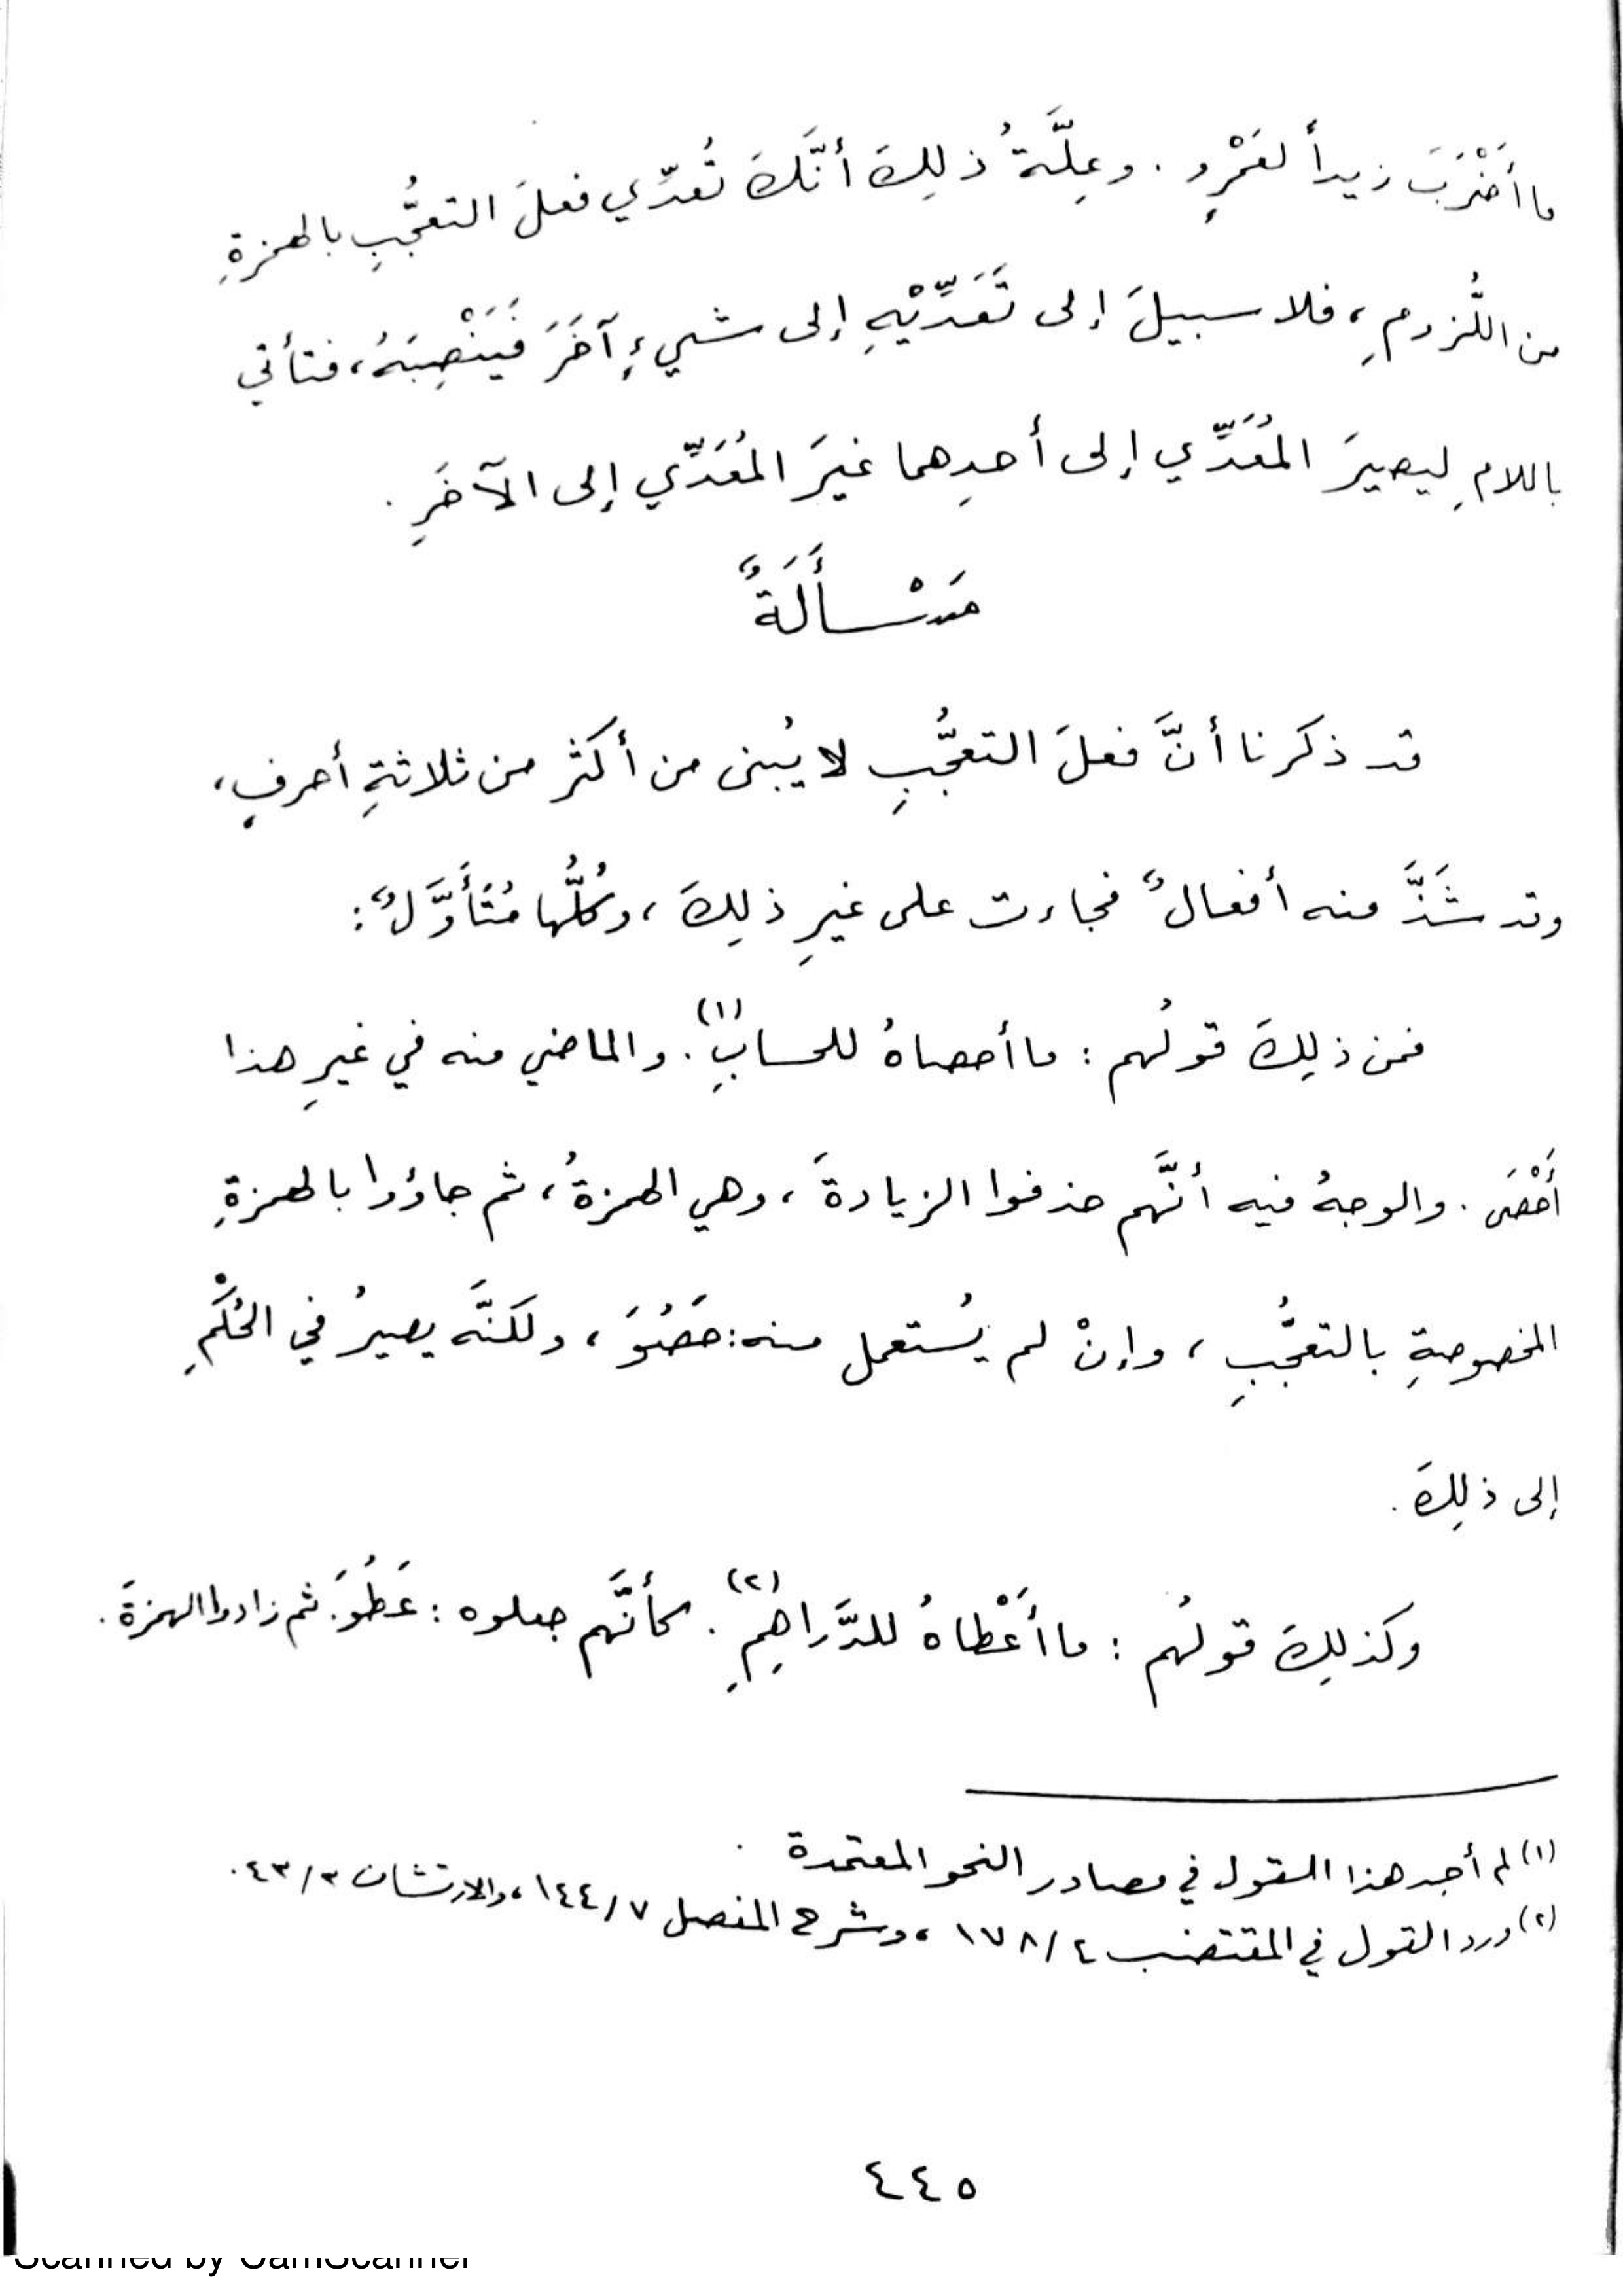 ما أَضْرَبَ زيداً لعَمْرٍو . وعِلَّةُ ذلِكَ أنَّكَ تُعدِّي فعلَ التعجُّبِ بالهمزةِ
من اللُّزومِ، فلا سبيلَ إلى تَعَدِّيْهِ إلى شيءٍ آخَرَ فَيَنْصِبَهُ، فتأتي
باللامِ ليصيرَ المُعَدِّي إلى أحدِهما غيرَ المُعَدِّي إلى الآخَرِ .
مَسْأَلَةٌ
قد ذكرنا أنَّ فعلَ التعجُّبِ لا يُبنى من أكثر من ثلاثةِ أحرفٍ،
وقد شَذَّ منه أفعالٌ فجاءت على غيرِ ذلِكَ، وكُلُّها مُتَأَوَّلٌ :
فمن ذلِكَ قولُهم : ما أحصاهُ للحسابِ(١). والماضي منه في غيرِ هذا
أَحْصَى . والوجهُ فيه أنَّهم حذفوا الزيادةَ، وهي الهمزةُ، ثم جاؤوا بالهمزةِ
المخصوصةِ بالتعجُّبِ، وإنْ لم يُستعمل منه: حَصُوَ، ولكنَّه يصيرُ في الحُكْمِ
إلى ذلِكَ .
وكذلِكَ قولُهم : ما أَعْطاهُ للدَّراهِمِ(٢). كأنَّهم جعلوه : عَطُوَ. ثم زادوا الهمزةَ .
(١) لم أجد هذا القول في مصادر النحو المعتمدة .
(٢) ورد القول في المقتضب ٤/١٧٨، وشرح المفصل ٧/١٤٤، والارتشاف ٣/٤٣.
٤٤٥
Scanned by CamScanner